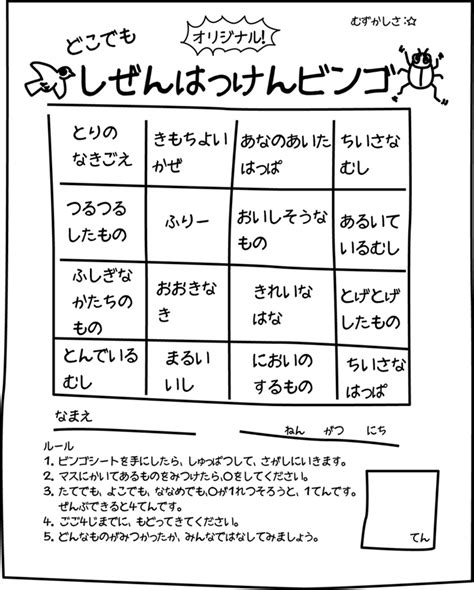 むずかしさ:☆
オリジナル!
どこでも
しぜんはっけんビンゴ
とりの
なきごえ
きもちよい
かぜ
あなのあいた
はっぱ
ちいさな
むし
つるつる
したもの
ふりー
おいしそうな
もの
あるいて
いるむし
ふしぎな
かたちの
もの
おおきな
き
きれいな
はな
とげとげ
したもの
とんでいる
むし
まるい
いし
においの
するもの
ちいさな
はっぱ
なまえ
ねん がつ にち
ルール
1. ビンゴシートを手にしたら、しゅっぱつして、さがしにいきます。
2. マスにかいてあるものをみつけたら、○をしてください。
3. たてでも、よこでも、ななめでも、○が1れつそろうと、1てんです。
ぜんぶできると4てんです。
4. ごご4じまでに、もどってきてください。
5. どんなものがみつかったか、みんなではなしてみましょう。
てん